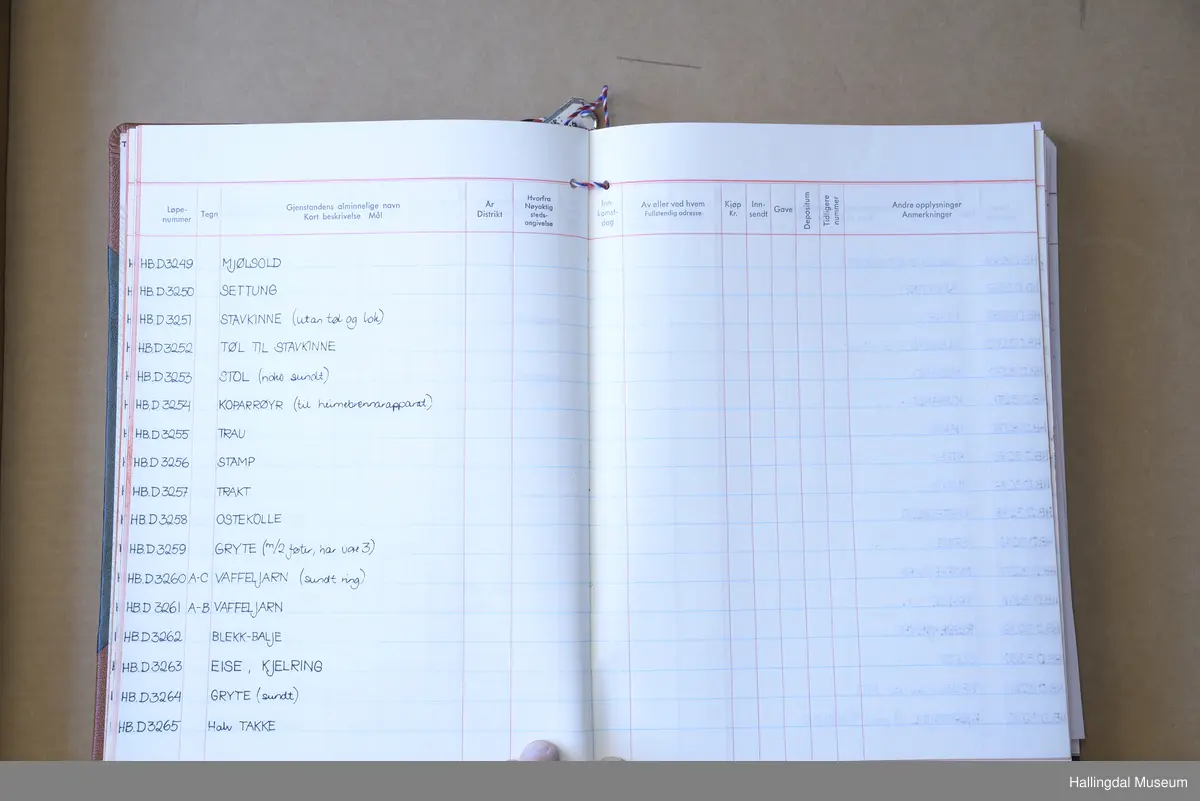 Løpe-
nummer
Tegn
Gjenstandens alminnelige navn
Kort beskrivelse Mål
År
Distrikt
Hvorfra
Nøyaktig
steds-
angivelse
Inn-
komst-
dag
Av eller ved hvem
Fullstendig adresse
Kjøp
Kr.
Inn-
sendt
Gave
Depositum
Tidligere
nummer
Andre opplysninger
Anmerkninger
HB.D3249 MJØLSOLD
HB.D3250 SETTUNG
HB.D3251 STAVKINNE (utan tøl og lok)
HB.D3252 TØL TIL STAVKINNE
HB.D3253 STOL (noko sundt)
HB.D3254 KOPARRØYR (til heimebrennarapparat)
HB.D3255 TRAU
HB.D3256 STAMP
HB.D3257 TRAKT
HB.D3258 OSTEKOLLE
HB.D3259 GRYTE (m/2 føter, har vore 3)
HB.D3260 A-C VAFFELJARN (sundt ring)
HB.D3261 A-B VAFFELJARN
HB.D3262 BLEKK-BALJE
HB.D3263 EISE, KJELRING
HB.D3264 GRYTE (sundt)
HB.D3265 Halv TAKKE
Hallingdal Museum